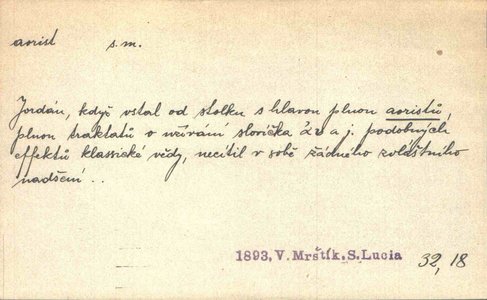 aorist s. m.
Jordán, když vstal od stolku s hlavou plnou aoristů,
plnou traktátů o užívání slovíčka ἄν a j. podobných
effektů klassické vědy, necítil v sobě žádného zvláštního
nadšení...
1893, V. Mrštík. S. Lucia 32, 18